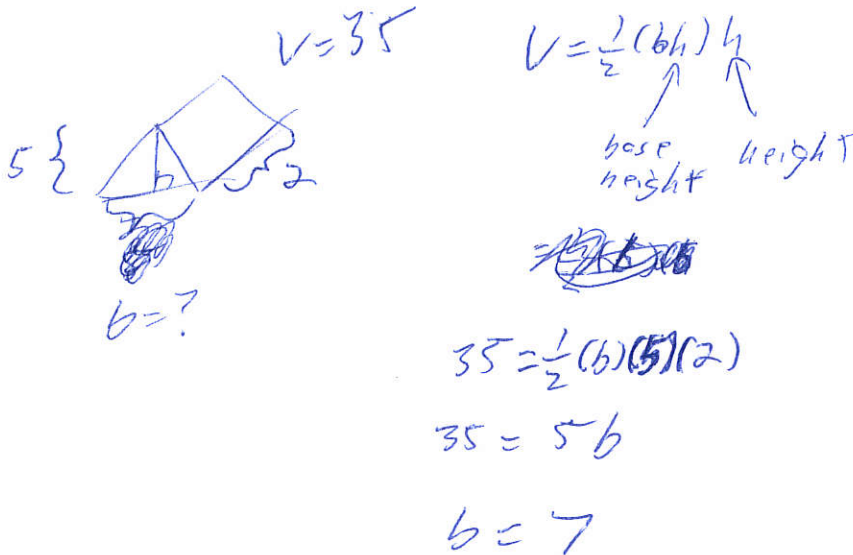 V = 35
5
2
b = ?
V = 1/2 (bh) h
base height
height
35 = 1/2 (b)(5)(2)
35 = 5b
b = 7